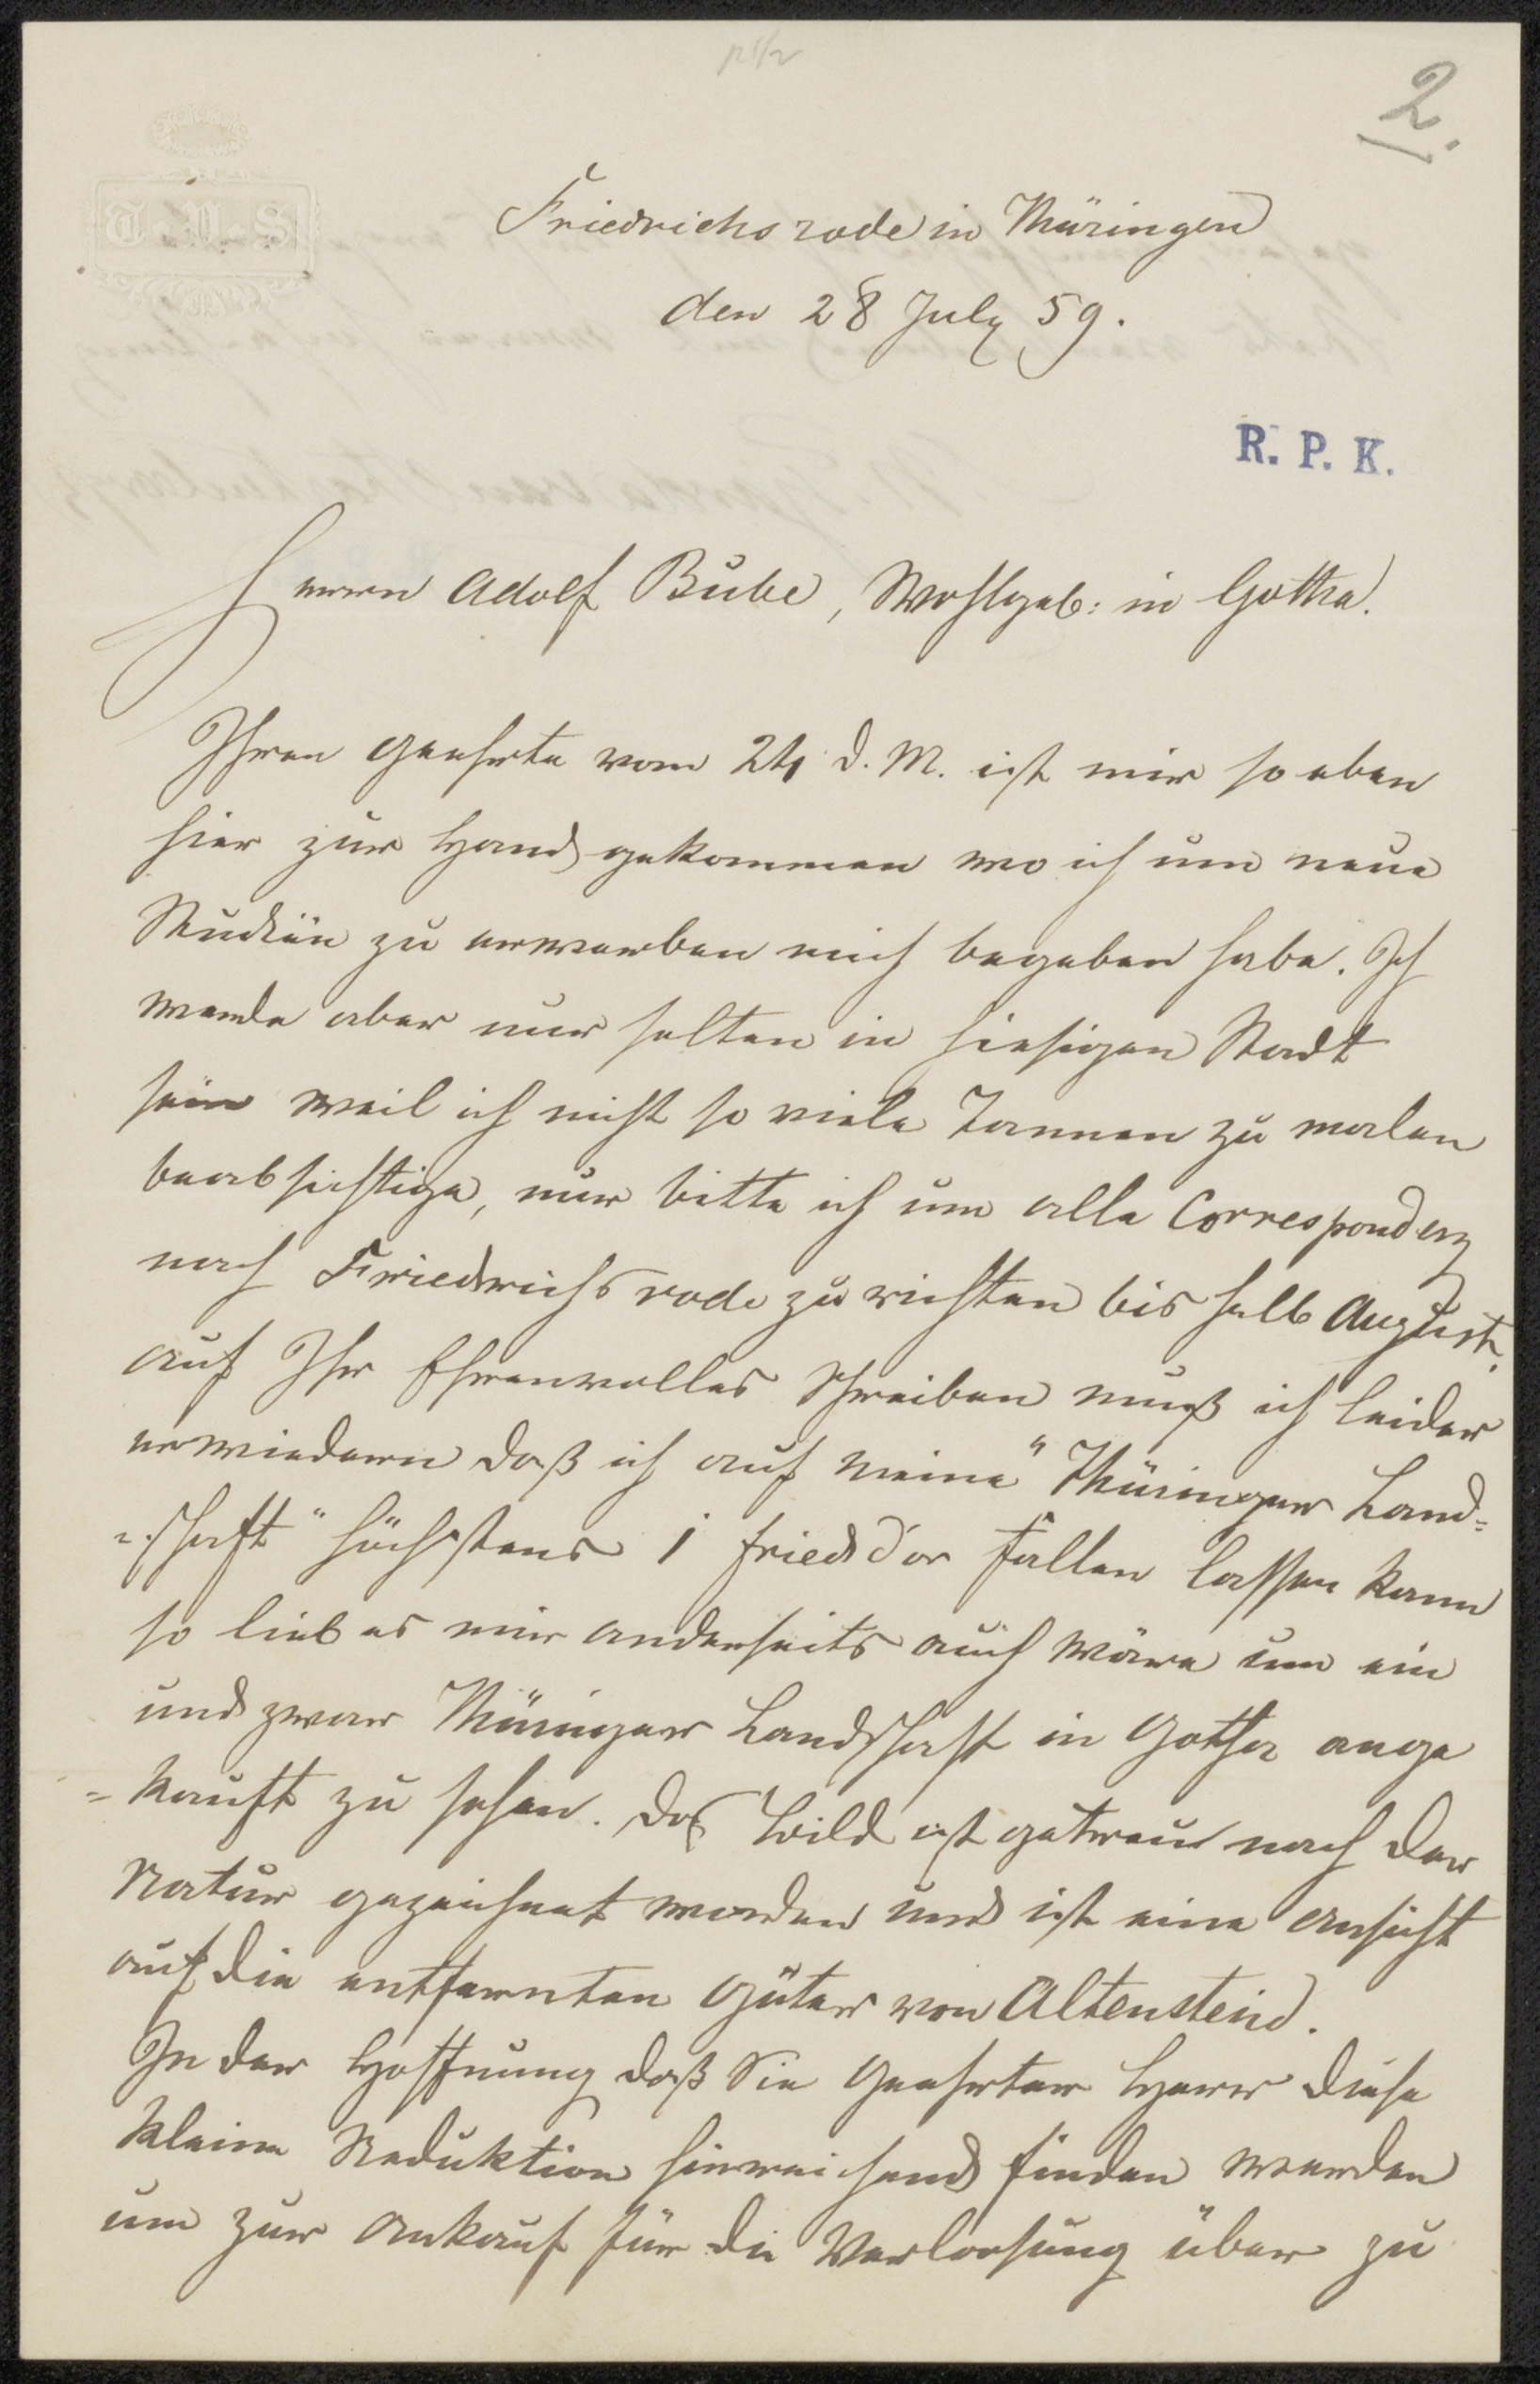 2.
Friedrichsrode in Thüringen
den 28 July 59.
R. P. K.
Herrn Adolf Bube, Wohlgeb: in Gotha.
Ihren geehrte vom 24 d. M. ist mir so eben
hier zur Hand gekommen wo ich um neue
Studiën zu erwerben mich begeben habe. Ich
werde aber nur selten in hiesigen Stadt
sein weil ich nicht so viele Tannen zu malen
beabsichtige, nur bitte ich um alle Correspondenz
nach Friedrichsrode zu richten bis halb August.
Auf Ihr Ehrenvolles Schreiben muß ich leider
erwiedern daß ich auf meine "Thüringer Land=
=schaft" höchstens 1 Friedsd'or fallen lassen kann
so lieb es mir anderseits auch wäre um ein
und zwar Thüringer Landschaft in Gotha ange
=kauft zu sehen. Das Bild ist getreu nach der
Natur gezeichnet worden und ist eine Ansicht
auf die entfernten Güter von Altenstein.
In der Hoffnung daß Sie Geehrter Herr diese
kleine Reduktion hinreichend finden werden
um zur Ankauf für die Verloosung über zu